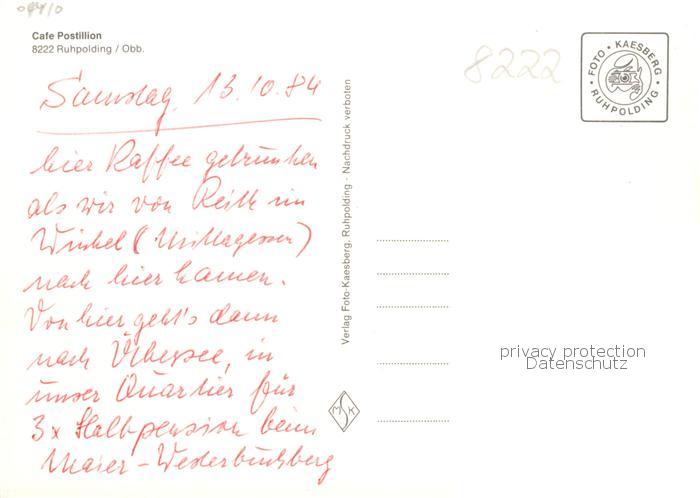 Cafe Postillion
8222 Ruhpolding / Obb.
8222
FOTO • KAESBERG • RUHPOLDING •
Samstag, 13.10.84
hier Kaffee getrunken
als wir von Reith im
Winkel (Mittagessen)
nach hier kamen.
Von hier geht's dann
nach Übersee, in
unser Quartier für
3x Halbpension beim
Maier - Westerbuchberg
Verlag Foto-Kaesberg, Ruhpolding - Nachdruck verboten
MSK
privacy protection
Datenschutz